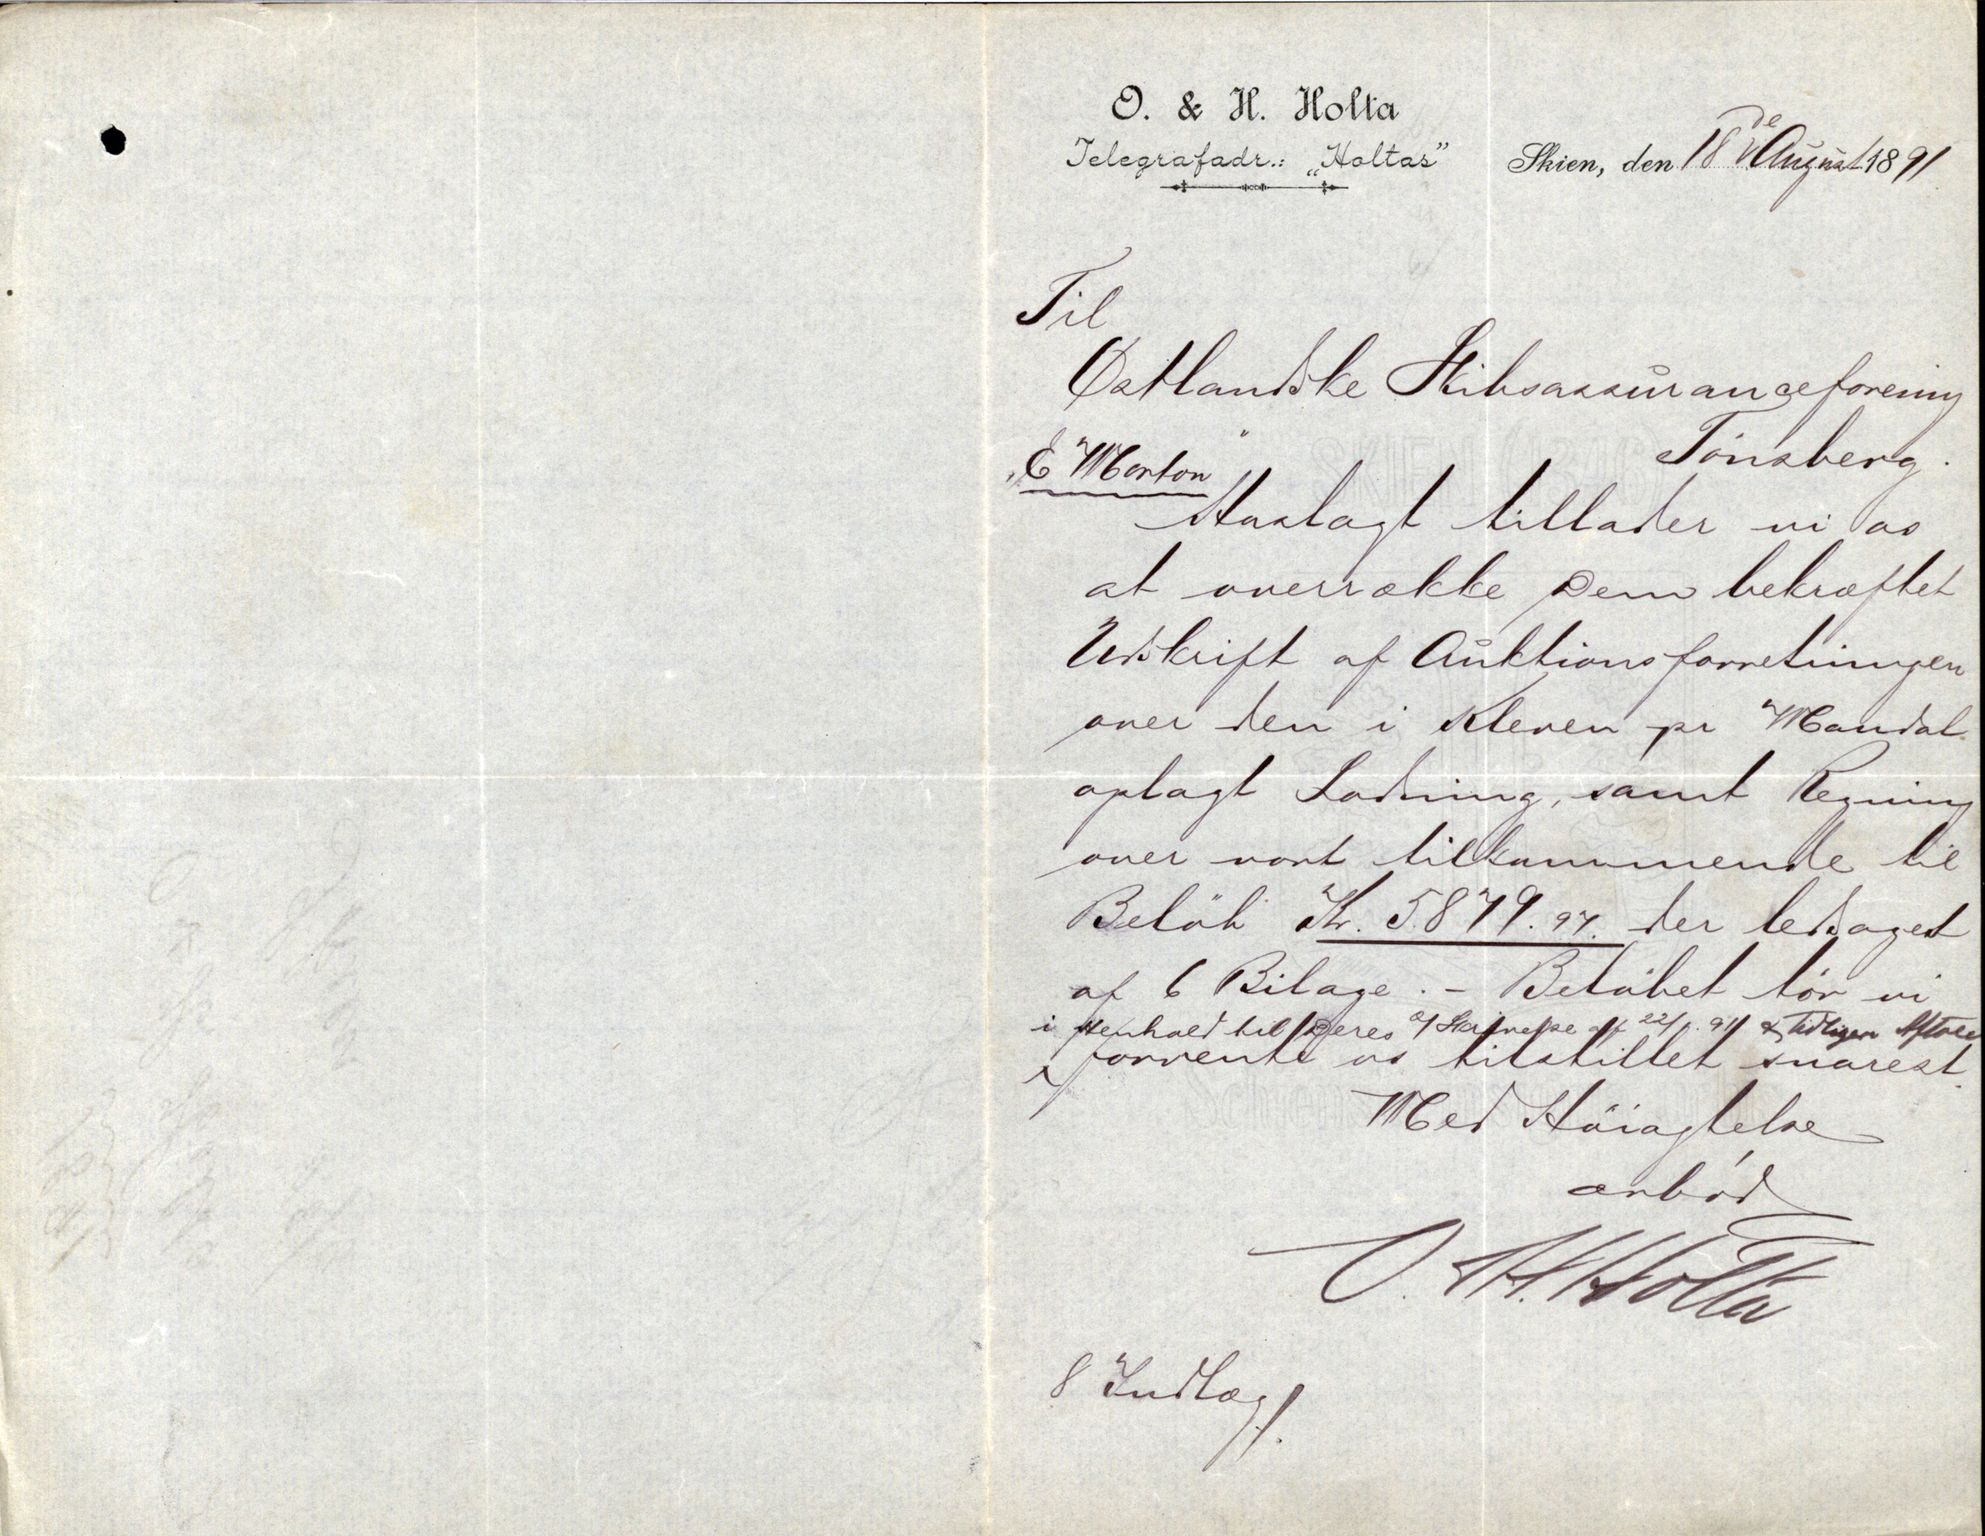 O. & H. Holta
Telegrafadr.: „Holtas”
Skien, den 18de August 1891
Til
Østlandske Skibsassuranceforening
Tönsberg.
„E Morton”
Hoslagt tillader vi os
at overrække Dem bekræftet
Udskrift af Auktionsforretningen
over den i Kleven pr Mandal
oplagt Ladning, samt Regning
over vort tilkommende til
Belöb Kr. 5879.97. der ledsaget
af 6 Bilage. – Belöbet tör vi
i Henhold til Deres af 22/ 91 & Tidligere Aftale
forvente os tilstillet snarest.
Med Höiagtelse
ærböd
O. H. Holta
8 Indlæg